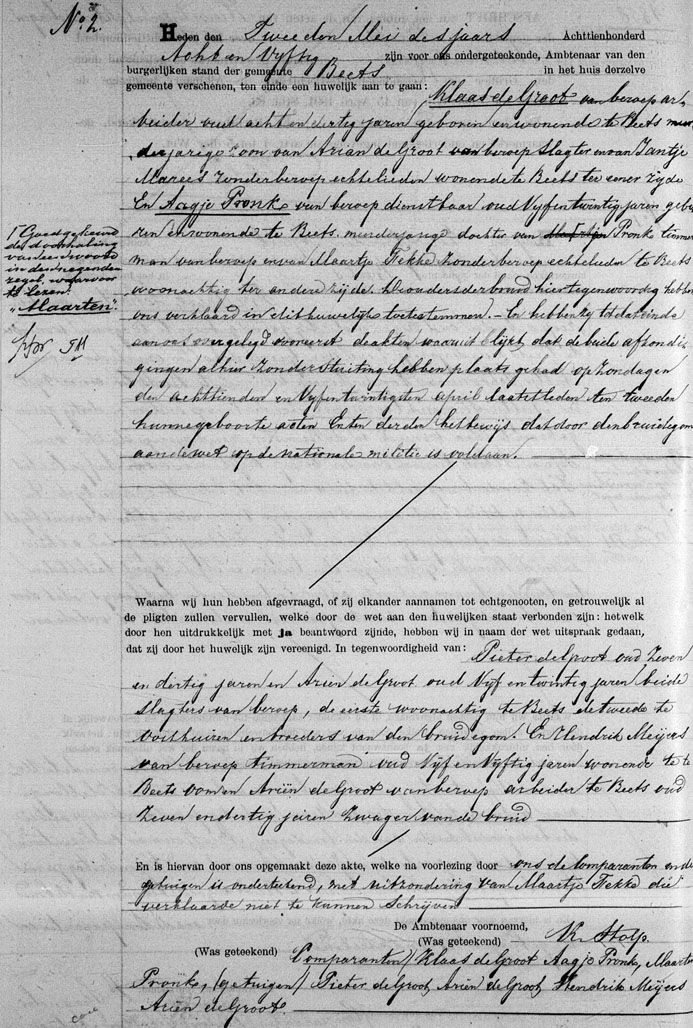 No. 2.
Heden den Twee den Mei des jaars Achttienhonderd
Acht en Vyftig zijn voor ons ondergeteekende, Ambtenaar van den
burgerlijken stand der gemeente Beets in het huis derzelve
gemeente verschenen, ten einde een huwelijk aan te gaan:
Klaas de Groot van beroep ar-
beider oud acht en dertig jaren geboren en wonende te Beets meer
derjarige zoon van Ariën de Groot van beroep Slagter en van Jantje
Marees zonder beroep echtelieden wonende te Beets ter eener zyde
En Aagje Pronk van beroep dienstbaar oud Vyf en twintig jaren gebo
ren en wonende te Beets meerderjarige dochter van Pronk timmer
man van beroep en van Maartje Tekke zonder beroep echtelieden te Beets
woonachtig ter andere zyde. de ouders der bruid hier tegenwoordig hebben
ons verklaard in dit huwelyk toe te stemmen. - En hebben zy tot dat einde
aan ons overgelegd vooreerst de akten waaruit blykt dat de beide afkondi
gingen alhier zonder stuiting hebben plaats gehad op Zondagen
den achttienden en Vyf en twintigsten april laatstleden Ten tweeden
hunne geboorte acten En ten derden het bewys dat door den bruidegom
aan de wet op de nationale militie is voldaan.
1 Goedgekeurd
de doorhaling
van een woord
in den negenden
regel, waarvoor
te lezen
"Maarten".
Waarna wij hun hebben afgevraagd, of zij elkander aannamen tot echtgenooten, en getrouwelijk al
de pligten zullen vervullen, welke door de wet aan den huwelijken staat verbonden zijn: hetwelk
door hen uitdrukkelijk met ja beantwoord zijnde, hebben wij in naam der wet uitspraak gedaan,
dat zij door het huwelijk zijn vereenigd. In tegenwoordigheid van:
Pieter de Groot oud Zeven
en dertig jaren en Ariën de Groot oud Vyf en twintig jaren beide
Slagters van beroep, de eerste woonachtig te Beets de tweede te
Oosthuizen en broeders van den bruidegom. En Hendrik Meijers
van beroep timmerman oud Vyf en Vyftig jaren wonende te
Beets oom en Ariën de Groot van beroep arbeider te Beets oud
Zeven en dertig jaren Zwager van de bruid
En is hiervan door ons opgemaakt deze akte, welke na voorlezing door ons de Comparanten en de
getuigen is onderteekend, met uitzondering van Maartje Tekke die
verklaarde niet te kunnen schrijven
De Ambtenaar voornoemd,
(Was geteekend) K. Stolp.
(Was geteekend) Comparanten / Klaas de Groot Aagje Pronk, Maarten
Pronk, (getuigen) / Pieter de Groot, Ariën de Groot, Hendrik Meijers
Ariën de Groot.